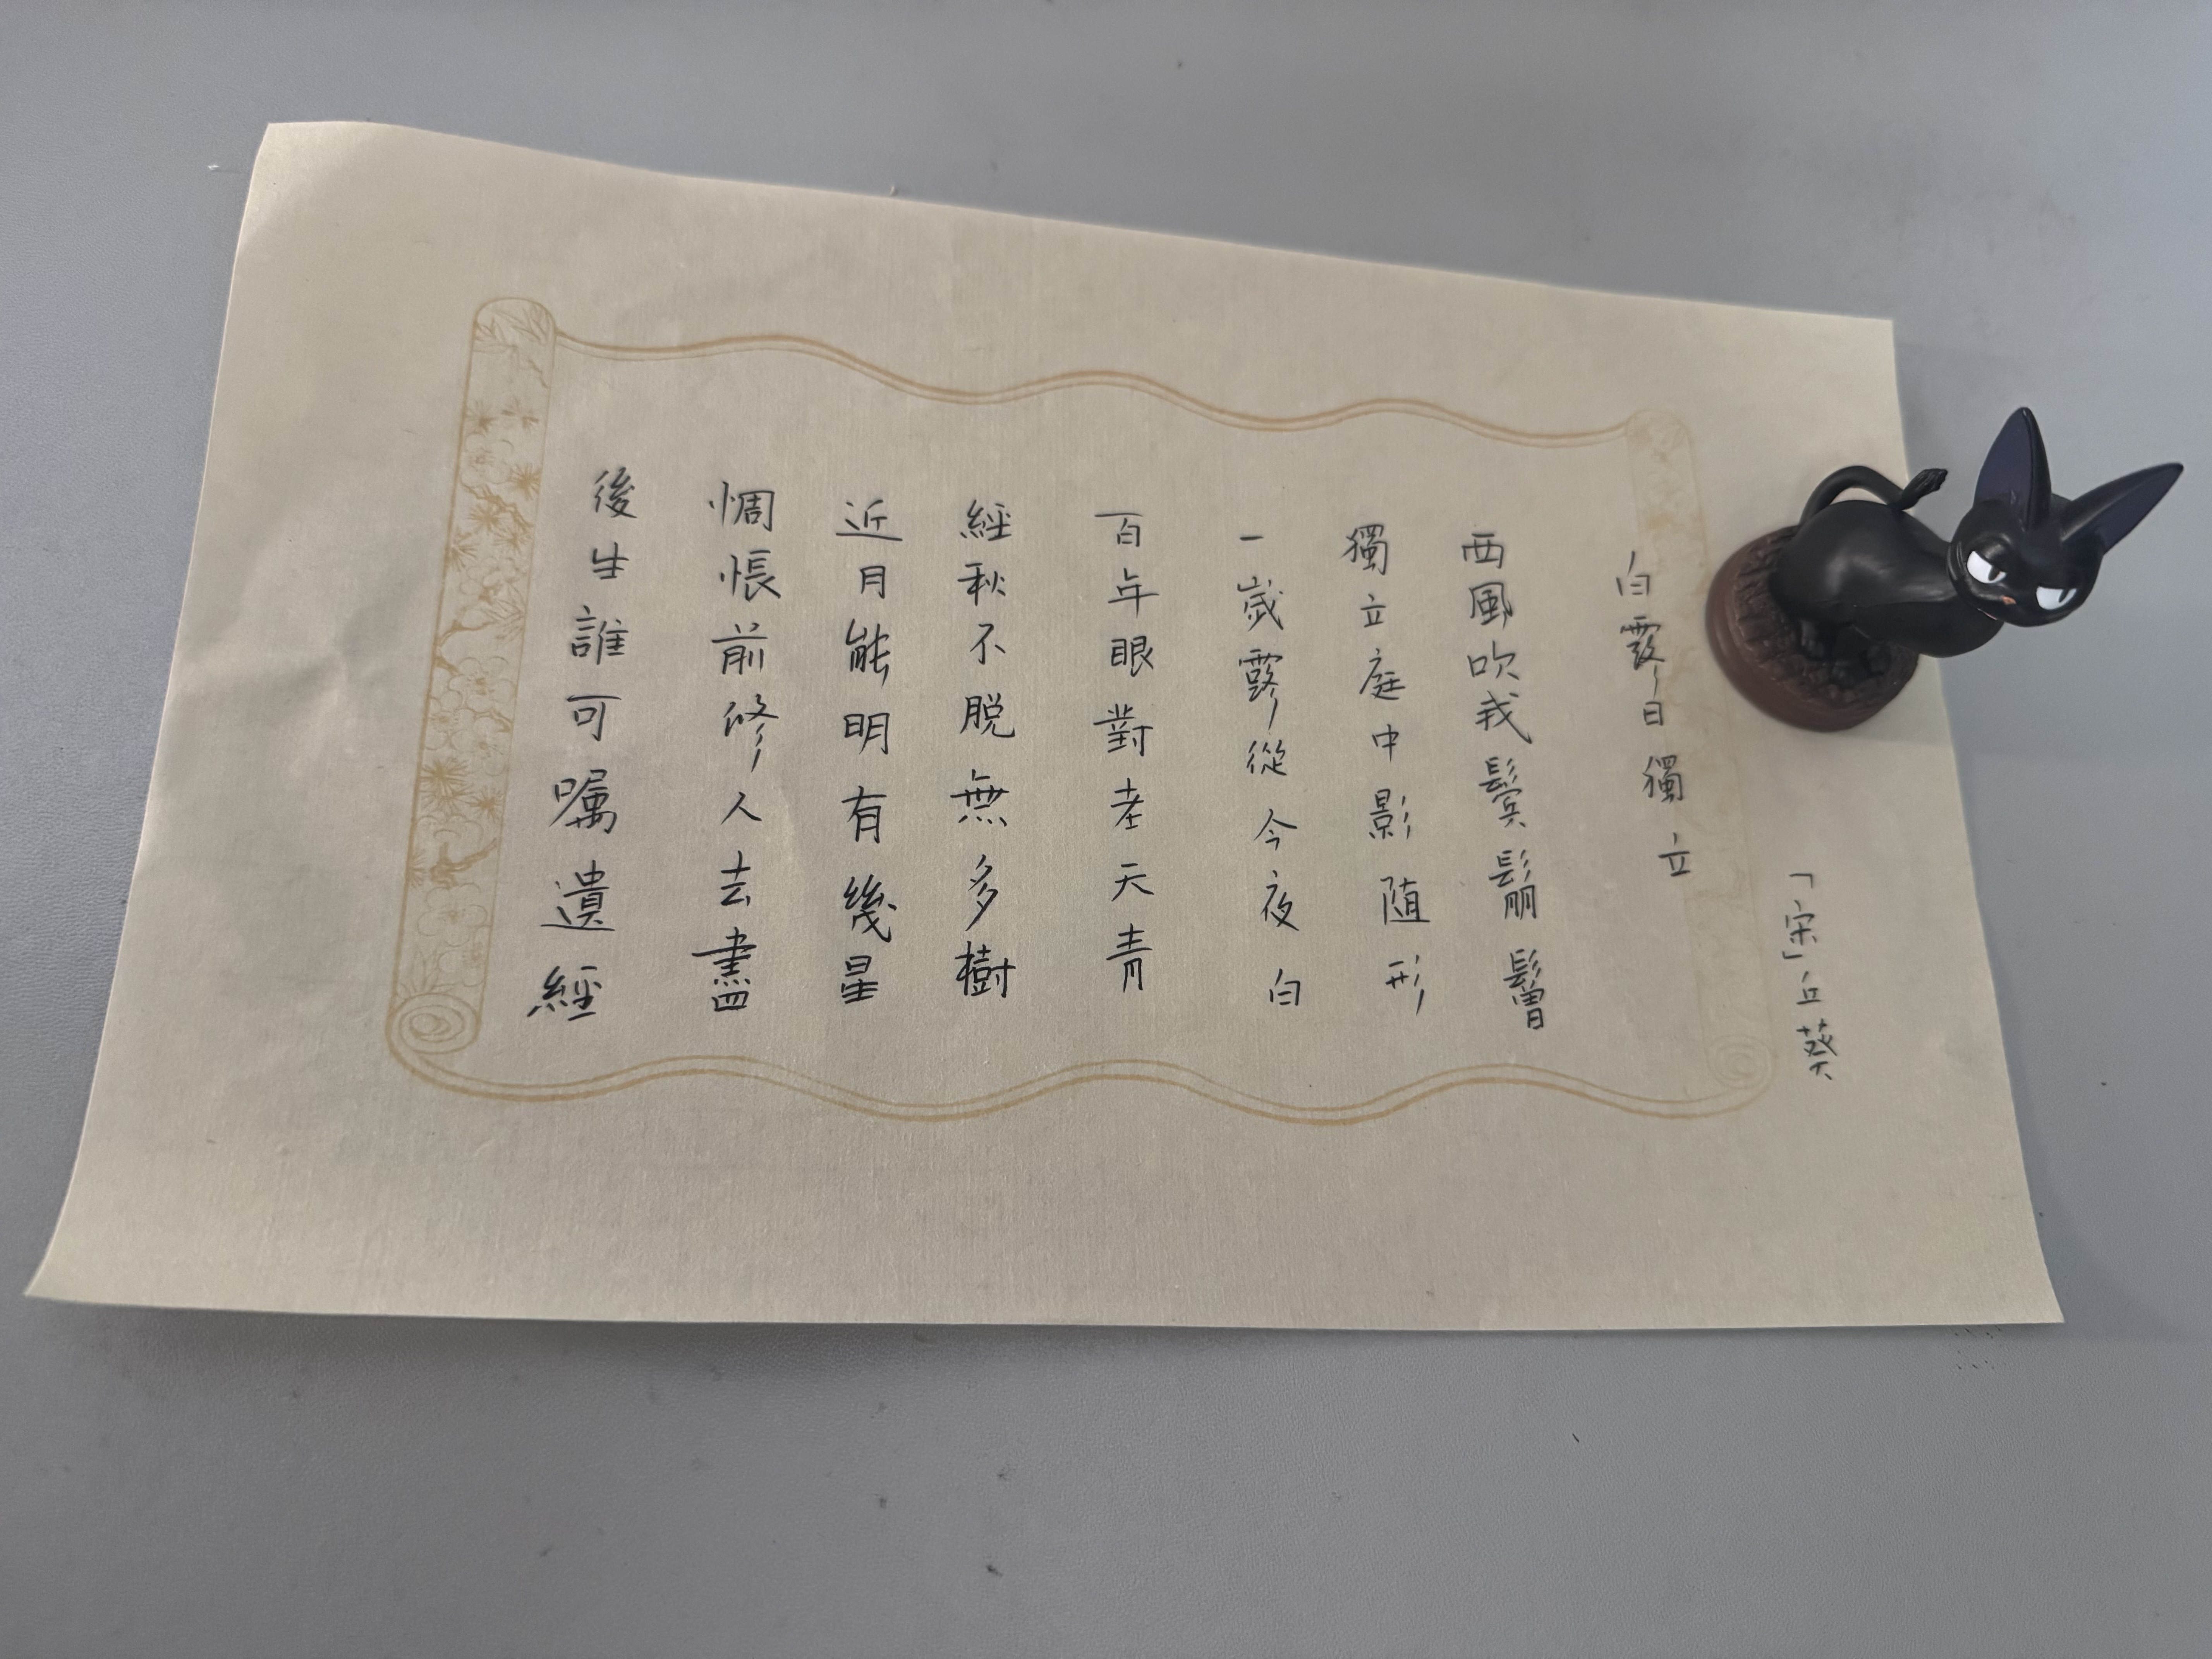 「宋」丘葵
白露日獨立
西風吹我鬢鬅鬙
獨立庭中影随形
一歲露從今夜白
百年眼對老天青
經秋不脱無多樹
近月能明有幾星
惆悵前修人去盡
後生誰可嘱遺經